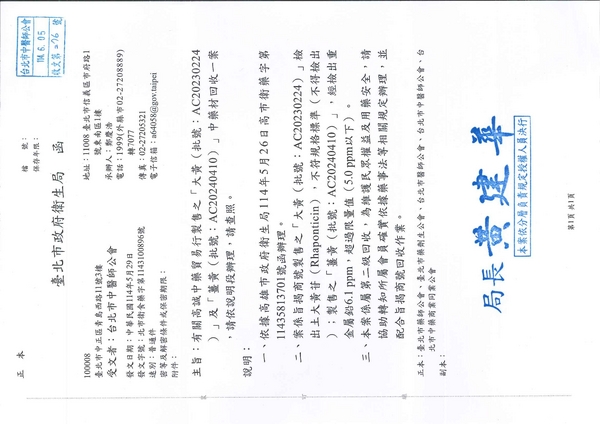 正 本
檔 號：
保存年限：
台北市中醫師公會
114. 6. 05
收文第 276 號
臺北市政府衛生局 函
地址：11008 臺北市信義區市府路1
號東南區1樓
承辦人：鄭慶浩
電話：1999(外縣市02-27208889)
轉7077
傳真：02-27205321
電子信箱：ai6458@gov.taipei
100008
臺北市中正區青島西路11號3樓
受文者：台北市中醫師公會
發文日期：中華民國114年5月29日
發文字號：北市衛食藥字第1143100896號
速別：普通件
密等及解密條件或保密期限：
附件：
主旨：有關高誠中藥貿易行製售之「大黃（批號：AC20230224
）」及「薑黃（批號：AC20240410）」中藥材回收一案
，請依說明段辦理，請查照。
說明：
一、依據高雄市政府衛生局114年5月26日高市衛藥字第
11435813701號函辦理。
二、案係旨揭商號製售之「大黃（批號：AC20230224）」檢
出土大黃苷（Rhaponticin），不符規格標準（不得檢出
）；製售之「薑黃（批號：AC20240410）」，經檢出重
金屬鉛6.1 ppm，超過限量值（5.0 ppm以下）。
三、本案係屬第二級回收，為維護民眾權益及用藥安全，請
協助轉知所屬會員確實依據藥事法等相關規定辦理，並
配合旨揭商號回收作業。
正本：臺北市藥師公會、臺北市藥劑生公會、台北市西藥商業同業公會、台北市中醫師公會、台
北市中藥商業同業公會
副本：
局長 黃建華
本案依分層負責規定授權人員決行
第1頁 共1頁